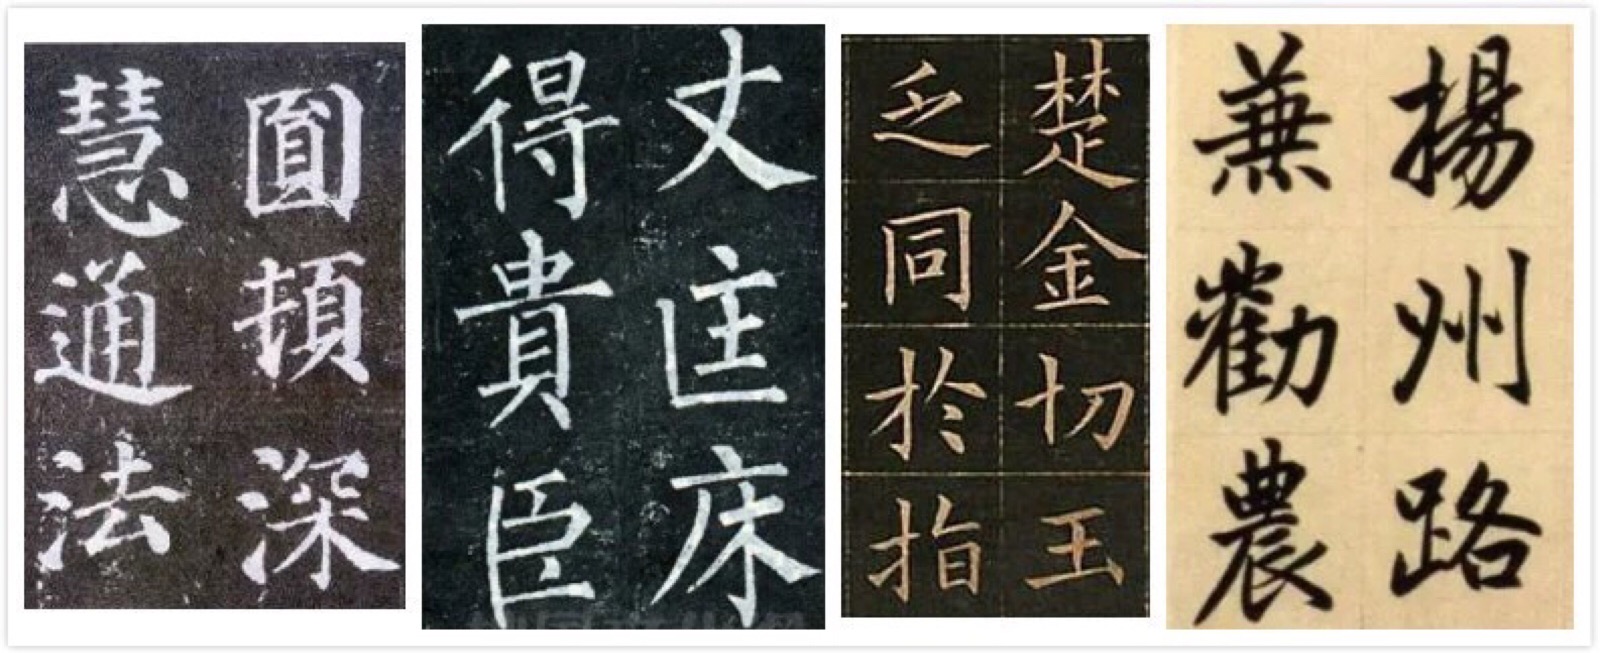 圓頓深
慧通法
丈匡床
得貴臣
楚金切玉
乏同於指
揚州路
兼勸農